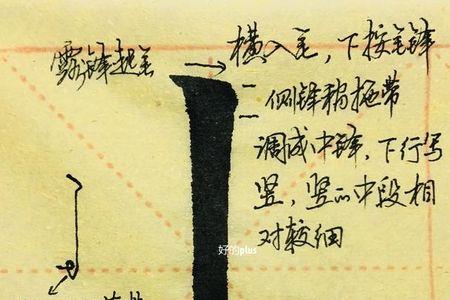 露锋起笔
横入笔，下按笔锋
侧锋稍拖带
调成中锋，下行写
竖，竖的中段相
对较细
好的plus